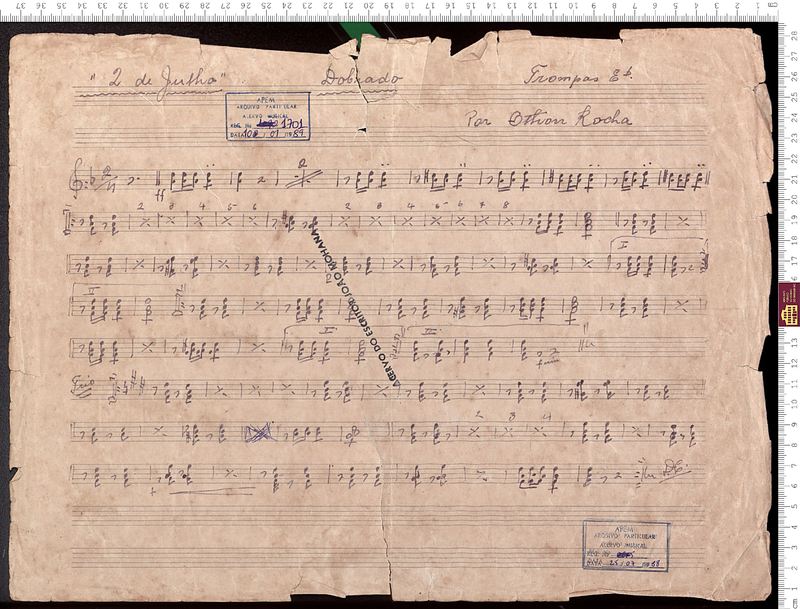 " 2 de Julho " Dobrado Trompas Eb.
Por Othon Rocha
APEM
ARQUIVO PARTICULAR
ACERVO MUSICAL
REG. Nº 1701
ff
2 3 4 5 6 2 3 4 5 6 7 8
I
II
D.C. ao
ACERVO DO ESCRITOR JOÃO MOHANA
Trio
2 3 4
D.C.
APEM
ARQUIVO PARTICULAR
ACERVO MUSICAL
REG. Nº
DATA 25 / 07